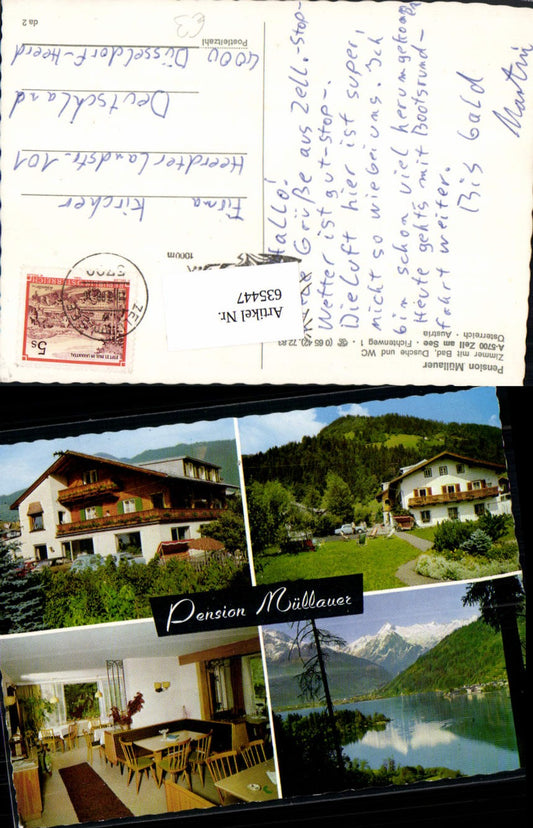 Pension Müllauer
Zimmer mit Bad, Dusche und WC
A-5700 Zell am See · Fichtenweg 1 ·
Österreich · Austria
Hallo!
Grüße aus Zell. - Stop -
Wetter ist gut - Stop -.
Die Luft hier ist super,
nicht so wie bei uns. Ich
bin schon viel herumgekommen
Heute gehts mit Bootsrund-
fahrt weiter.
Bis bald
Martin
5700
5 S
Firma
Kircher
Heerdter Landstr. 101
Deutschland
4000 Düsseldorf-Heerd
Postleitzahl
da 2
Artikel Nr.
635447
Pension Müllauer